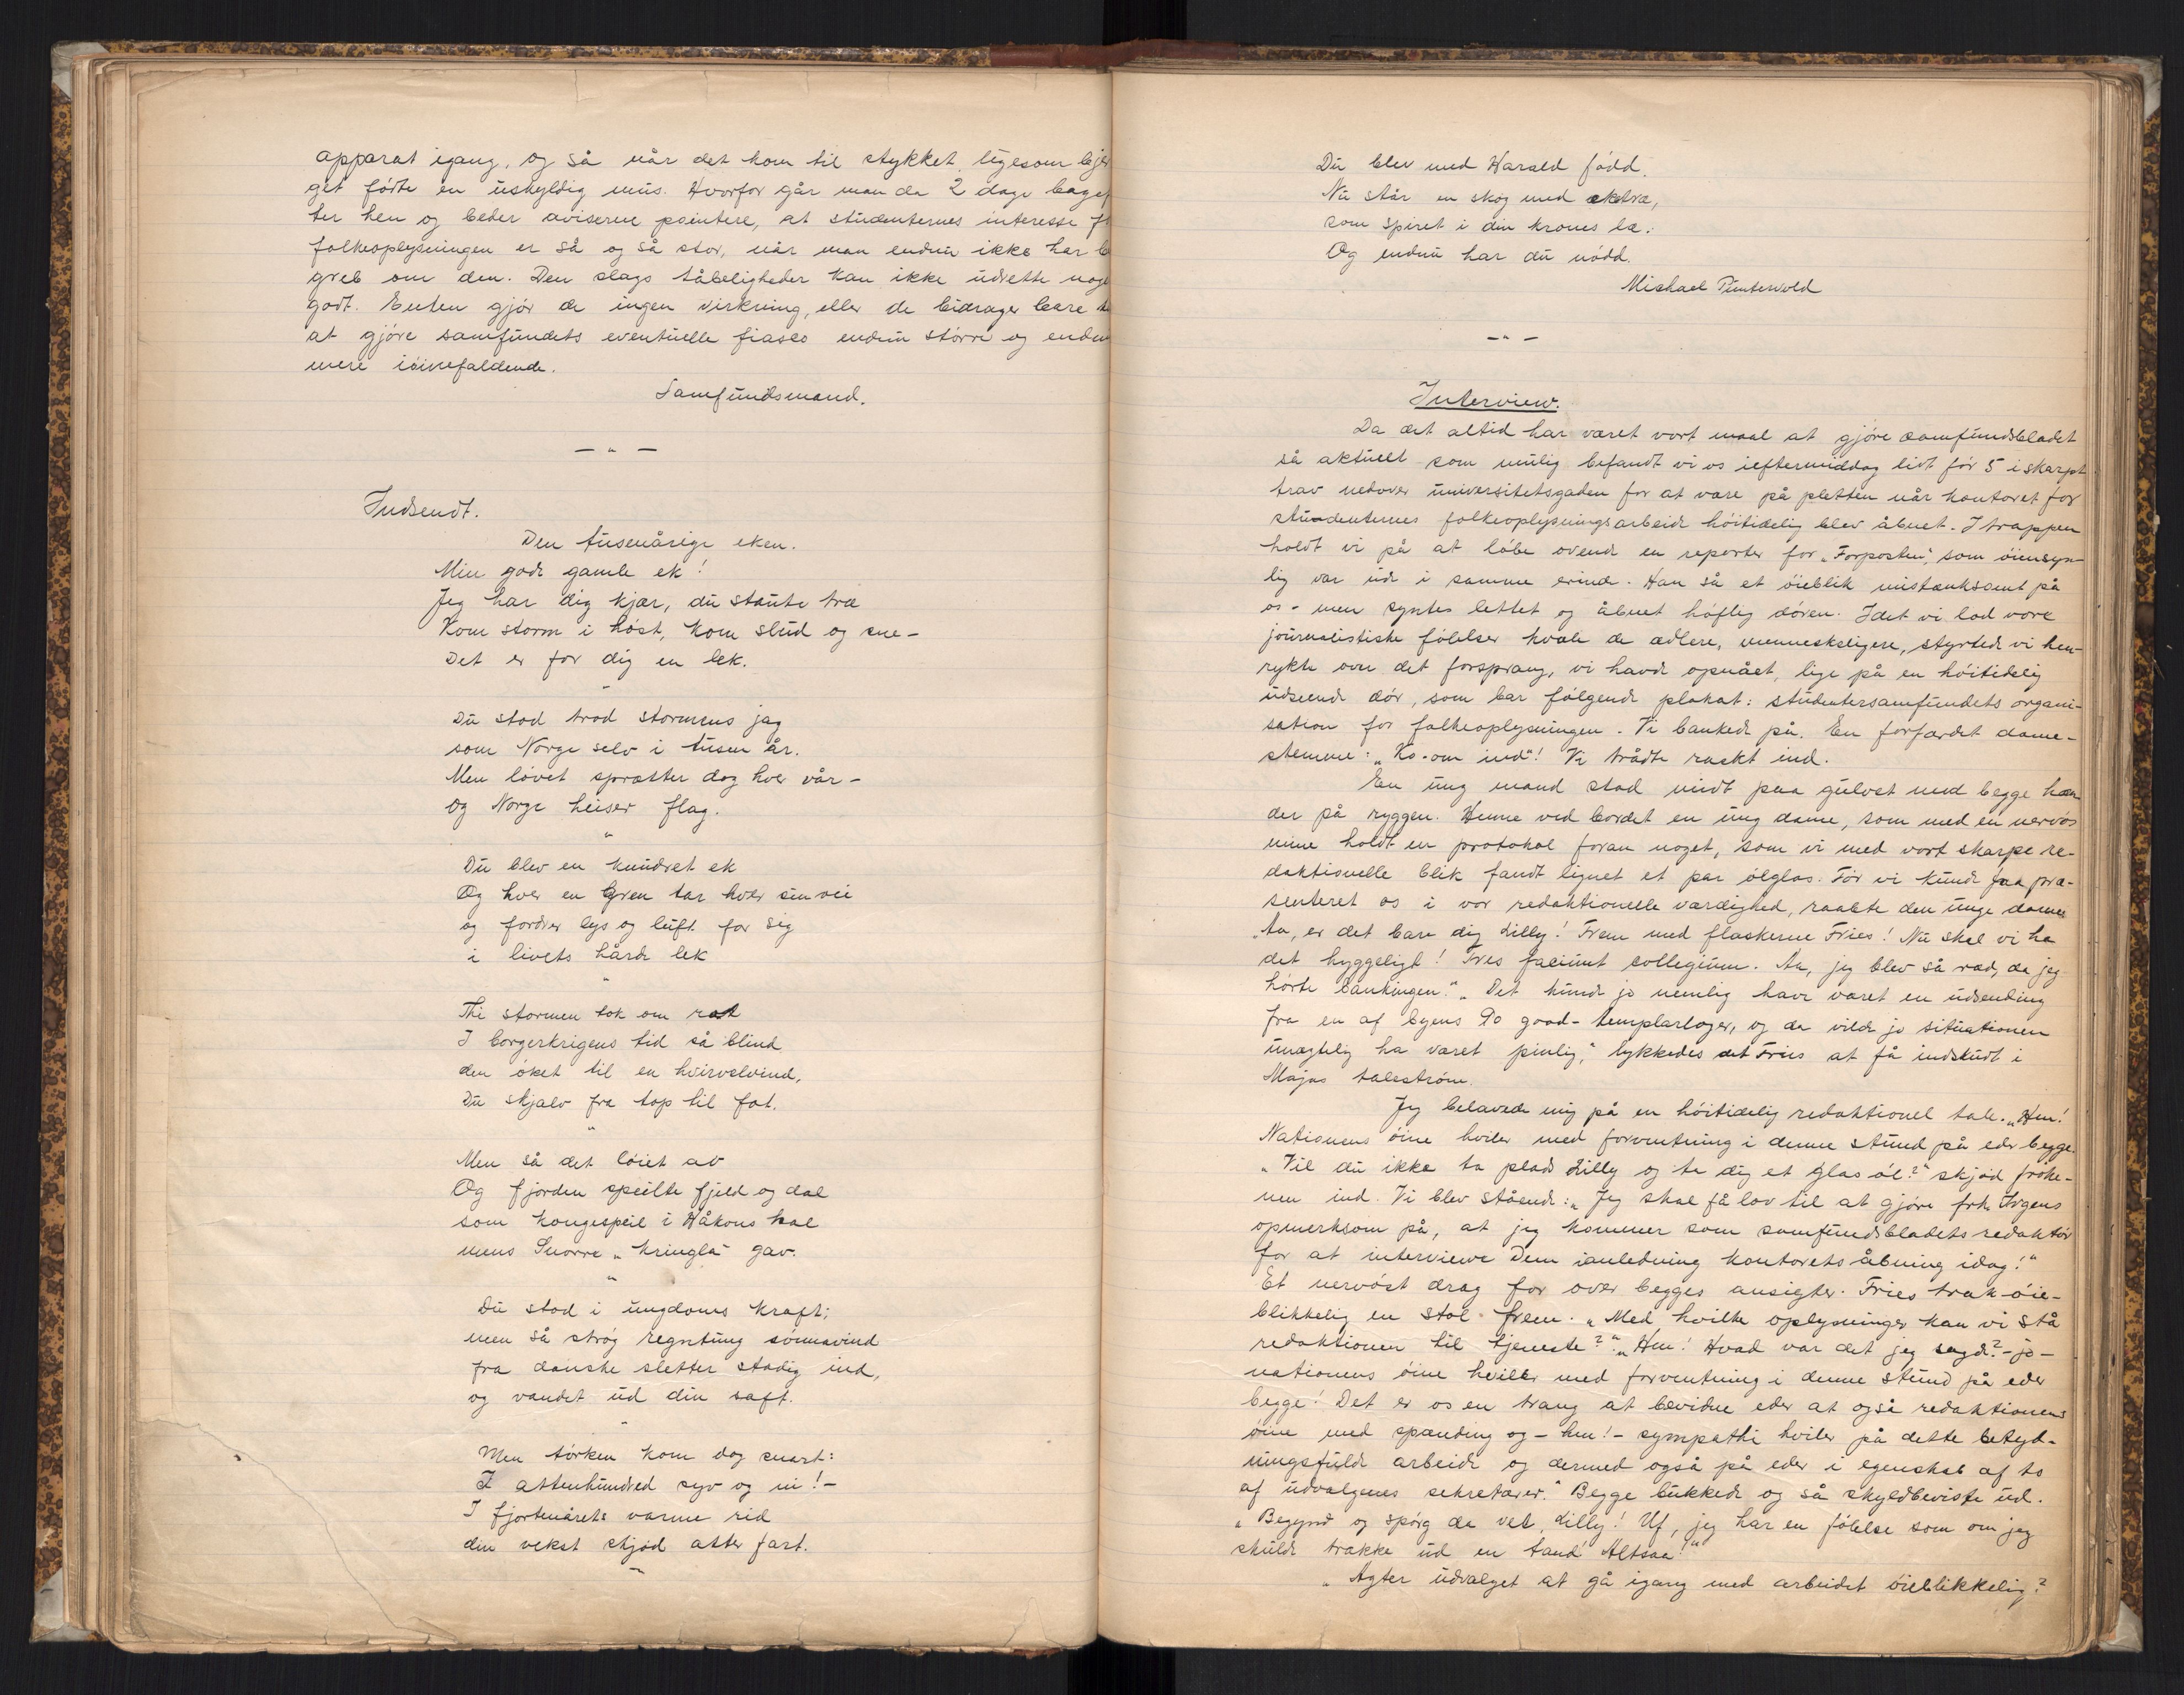 apparat igang, og så når det kom til stykket ligesom bjer
get fødte en uskyldig mus. Hvorfor går man da 2 dage bagef
ter hen og beder aviserne pointere, at studenternes interesse f
folkeoplysningen er så og så stor, når man endnu ikke har be
greb om den. Den slags tåbeligheder kan ikke udrette noge
godt. Enten gjør de ingen virkning, eller de bidrager bare
at gjøre samfundets eventuelle fiasco endnu større og endnu
mere iøinefaldende.
Samfundsmand.
— " —
Indsendt.
Den tusenårige eken.
Min gode gamle ek!
Jeg har dig kjær, du staute træ
Kom storm i høst, kom slud og sne –
Det er for dig en lek.
"
Du stod trod stormens jag
som Norge selv i tusen år.
Men løvet sprætter dog hver vår –
og Norge heiser flag.
"
Du blev en knudret ek
Og hver en gren tar hver sin vei
og fordrer lys og luft for sig
i livets hårde lek
"
Thi stormen tok om rot
I borgerkrigens tid så blind
den øket til en hvirvelvind,
Du skjalv fra top til fot.
"
Men så det løiet av
Og fjorden speilte fjeld og dal
som kongespeil i Håkons hal
mens Snorre „kringla" gav.
"
Du stod i ungdoms kraft;
men så strøg regntung sønnavind
fra danske sletter stadig ind,
og vandet ud din saft.
"
Men tørken kom dog snart:
I attenhundred syv og ni! –
I fjortenårets varme rid
din vekst skjød atter fart.
"
Du blev med Harald fødd.
Nu står en skog med eketræ,
som spiret i din krones læ.
Og endnu har du nødd.
Michael Puntervold
— " —
Interview.
Da det altid har været vort maal at gjøre samfundsbladet
så aktuelt som mulig befandt vi os ieftermiddag lidt før 5 i skarpt
trav nedover universitetsgaden for at være på pletten når kontoret for
studenternes folkeoplysningsarbeide høitidelig blev åbnet. I trappen
holdt vi på at løbe overende en reporter for „Forposten", som øiensyn-
lig var ude i samme erinde. Han så et øieblik mistænksomt på
os – men syntes lettet og åbnet høflig døren. Idet vi lod vore
journalistiske følelser kvæle de ædlere, menneskeligere, styrtede vi hen-
rykte over det forsprang, vi havde opnået, lige på en høitidelig
udseende dør, som bar følgende plakat: studentersamfundets organi-
sation for folkeoplysningen. Vi bankede på. En forfærdet dame-
stemme: „Ko-om ind"! Vi trådte raskt ind.
En ung mand stod midt paa gulvet med begge hæn
der på ryggen. Henne ved bordet en ung dame, som med en nervøs
mine holdt en protokol foran noget, som vi med vort skarpe re-
daktionelle blik fandt lignet et par ølglas. Før vi kunde faa præ-
senteret os i vor redaktionelle værdighed, raabte den unge dame
„Aa, er det bare dig Lilly! Frem med flaskerne Fries! Nu skal vi ha
det hyggeligt! Tres faciunt collegium. Aa, jeg blev så ræd, da jeg
hørte bankingen." „Det kunde jo nemlig have været en udsending
fra en af byens 90 good-templarloger, og da vilde jo situationen
unægtelig ha været pinlig," lykkedes det Fries at få indskudt i
Majas talestrøm.
Jeg belavede mig på en høitidelig redaktionel tale. „Hm!
Nationens øine hviler med forventning i denne stund på eder begge.
„Vil du ikke ta plads Lilly og ta dig et glas øl?" skjød frøke-
nen ind. Vi blev stående: „Jeg skal få lov til at gjøre frk. Irgens
opmerksom på, at jeg kommer som samfundsbladets redaktør
for at interviewe Dem ianledning kontorets åbning idag!"
Et nervøst drag for over begges ansigter. Fries trak øie-
blikkelig en stol frem. „Med hvilke oplysninger kan vi stå
redaktionen til tjeneste?" „Hm! Hvad var det jeg sagde? – jo –
nationens øine hviler med forventning i denne stund på eder
begge! Det er os en trang at bevidne eder at også redaktionens
øine med spænding og – hm! – sympathi hviler på dette betyd-
ningsfulde arbeide og dermed også på eder i egenskab af to
af udvalgenes sekretærer." Begge bukkede og så skyldbeviste ud.
„Begynd og spørg da vel, Lilly! Uf, jeg har en følelse som om jeg
skulde trække ud en tand Altsaa!"
„Agter udvalget at gå igang med arbeidet øieblikkelig?